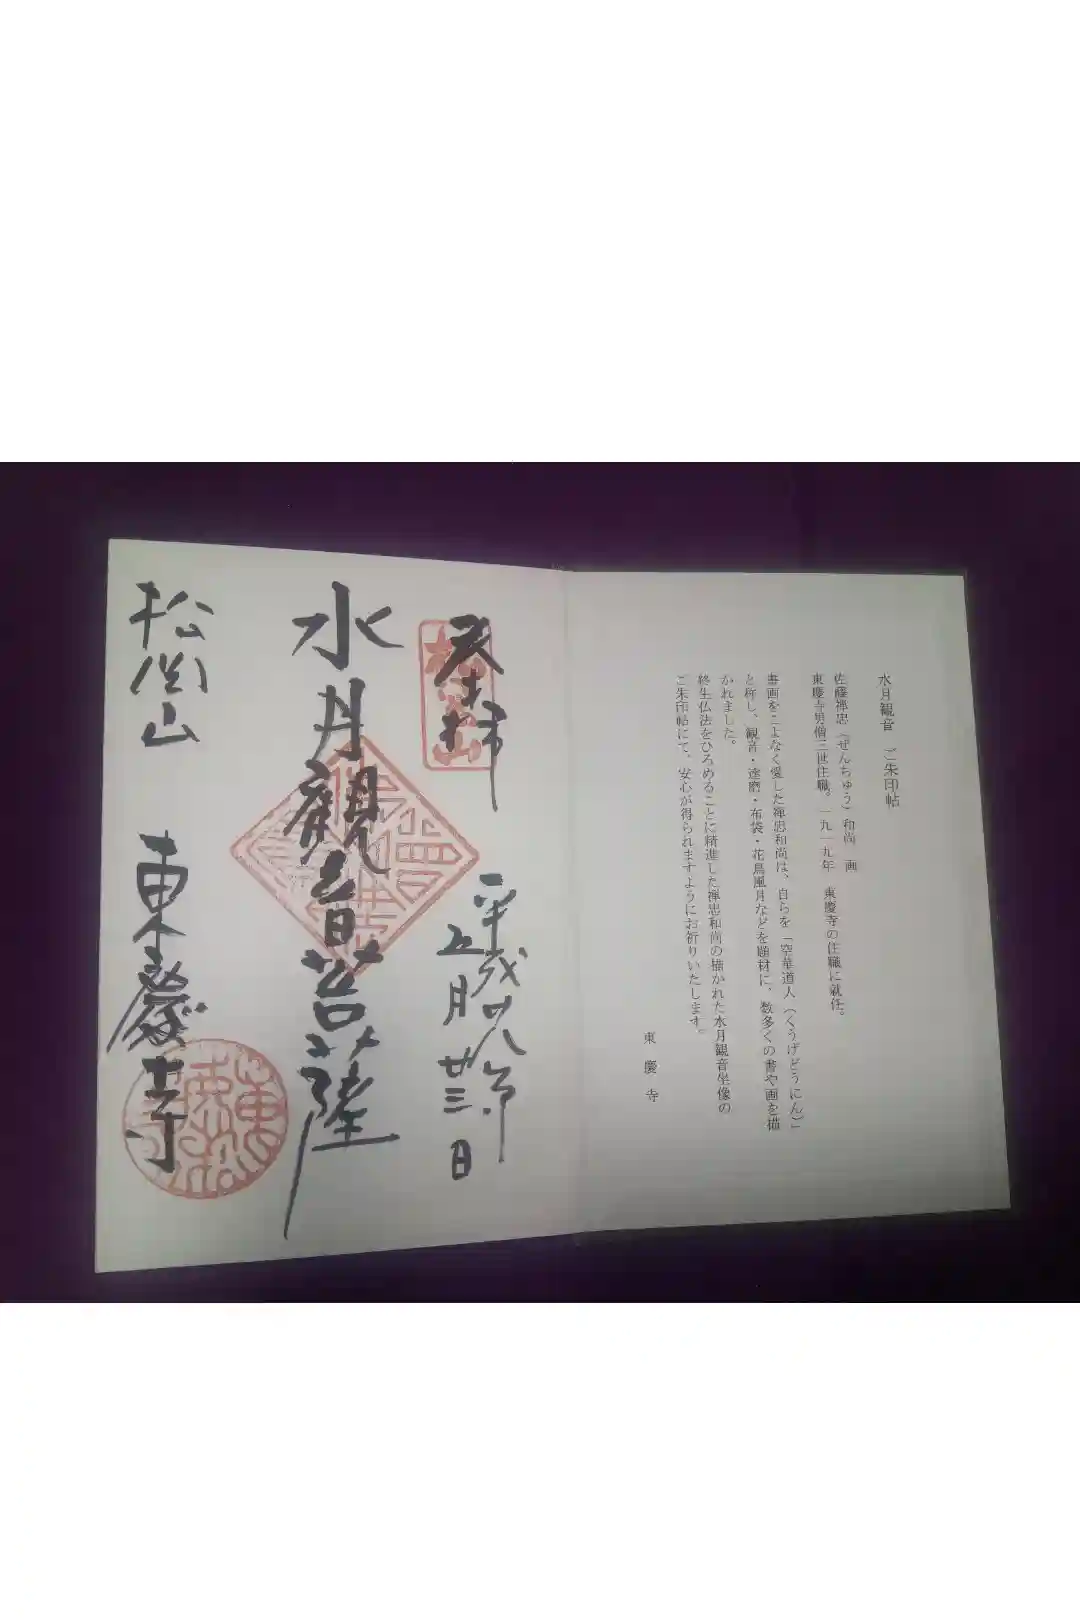 水月観音　ご朱印帖
佐藤禅忠（ぜんちゅう）和尚　画
東慶寺男僧三世住職。一九一九年　東慶寺の住職に就任。
書画をこよなく愛した禅忠和尚は、自らを「空華道人（くうげどうにん）」
と称し、観音・達磨・布袋・花鳥風月などを題材に、数多くの書や画を描
かれました。
終生仏法をひろめることに精進した禅忠和尚の描かれた水月観音坐像の
ご朱印帖にて、安心が得られますようにお祈りいたします。
東慶寺
奉拝
平成廿八年
五月廿三日
水月觀音菩薩
松岡山　東慶寺